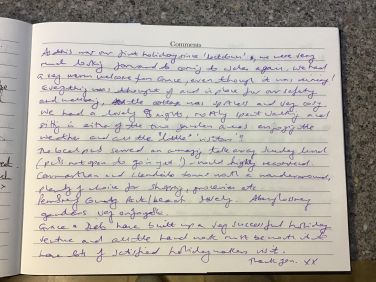 Comments
As this was our first holiday since 'lockdown', we were very
much looking forward to coming to Wales again. We had
a very warm welcome from Grace, even though it was raining!
Everything was thought of and in place for our safety
and wellbeing, the cottage was spotless and very cosy.
We had a lovely 8 nights, mostly spent walking and
sitting in either of the two garden areas enjoying the
weather and all the little 'visitors'!
The local pub served an amazing takeaway Sunday lunch
(pubs not open to go in yet!) - would highly recommend.
Carmarthen and Llandeilo towns worth a wander around,
plenty of choice for shopping, groceries etc.
Pembrey Country Park/beach lovely. Aberglasney
gardens very enjoyable.
Grace & Debs have built up a very successful holiday
venture and all the hard work must be worth it to
have lots of satisfied holidaymakers visit.
Thank you. XX